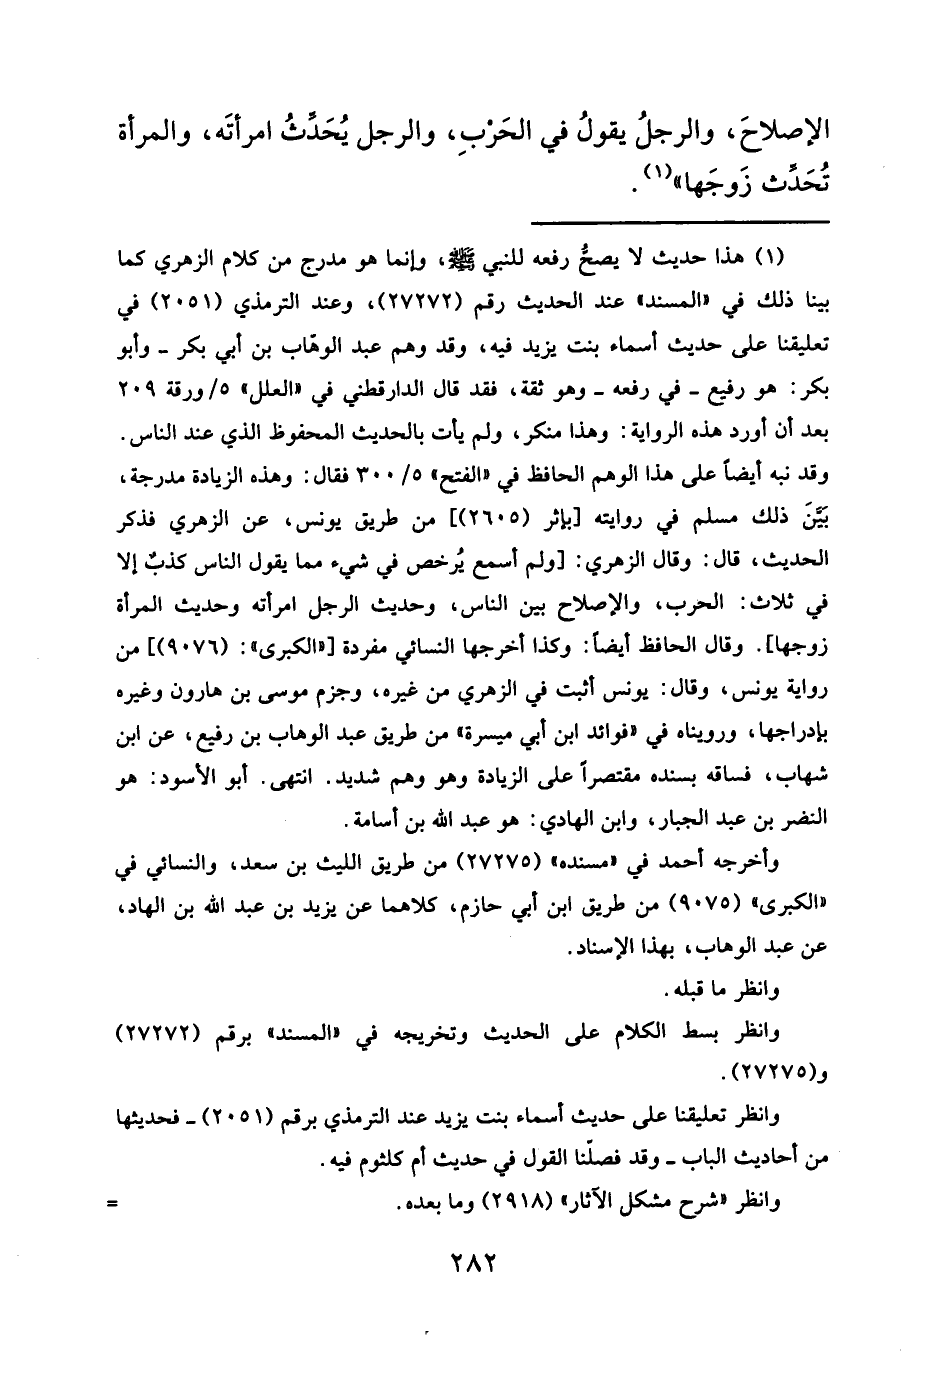 الإصلاحَ، والرجلُ يقولُ في الحَرْبِ، والرجل يُحَدِّثُ امرأتَه، والمرأة
تُحَدِّث زَوجَها»(١).
(١) هذا حديث لا يصحُّ رفعه للنبي ﷺ، وإنما هو مدرج من كلام الزهري كما
بينا ذلك في «المسند» عند الحديث رقم (٢٧٢٧٢)، وعند الترمذي (٢٠٥١) في
تعليقنا على حديث أسماء بنت يزيد فيه، وقد وهم عبد الوهّاب بن أبي بكر ـ وأبو
بكر: هو رفيع ـ في رفعه ـ وهو ثقة، فقد قال الدارقطني في «العلل» ٥/ ورقة ٢٠٩
بعد أن أورد هذه الرواية: وهذا منكر، ولم يأت بالحديث المحفوظ الذي عند الناس.
وقد نبه أيضاً على هذا الوهم الحافظ في «الفتح» ٥/ ٣٠٠ فقال: وهذه الزيادة مدرجة،
بَيَّنَ ذلك مسلم في روايته [بإثر (٢٦٠٥)] من طريق يونس، عن الزهري فذكر
الحديث، قال: وقال الزهري: [ولم أسمع يُرخص في شيء مما يقول الناس كذبٌ إلا
في ثلاث: الحرب، والإصلاح بين الناس، وحديث الرجل امرأته وحديث المرأة
زوجها]. وقال الحافظ أيضاً: وكذا أخرجها النسائي مفردة [«الكبرى»: (٩٠٧٦)] من
رواية يونس، وقال: يونس أثبت في الزهري من غيره، وجزم موسى بن هارون وغيره
بإدراجها، ورويناه في «فوائد ابن أبي ميسرة» من طريق عبد الوهاب بن رفيع، عن ابن
شهاب، فساقه بسنده مقتصراً على الزيادة وهو وهم شديد. انتهى. أبو الأسود: هو
النضر بن عبد الجبار، وابن الهادي: هو عبد الله بن أسامة.
وأخرجه أحمد في «مسنده» (٢٧٢٧٥) من طريق الليث بن سعد، والنسائي في
«الكبرى» (٩٠٧٥) من طريق ابن أبي حازم، كلاهما عن يزيد بن عبد الله بن الهاد،
عن عبد الوهاب، بهذا الإسناد.
وانظر ما قبله.
وانظر بسط الكلام على الحديث وتخريجه في «المسند» برقم (٢٧٢٧٢)
و(٢٧٢٧٥).
وانظر تعليقنا على حديث أسماء بنت يزيد عند الترمذي برقم (٢٠٥١) ـ فحديثها
من أحاديث الباب ـ وقد فصلّنا القول في حديث أم كلثوم فيه.
وانظر «شرح مشكل الآثار» (٢٩١٨) وما بعده. =
٢٨٢